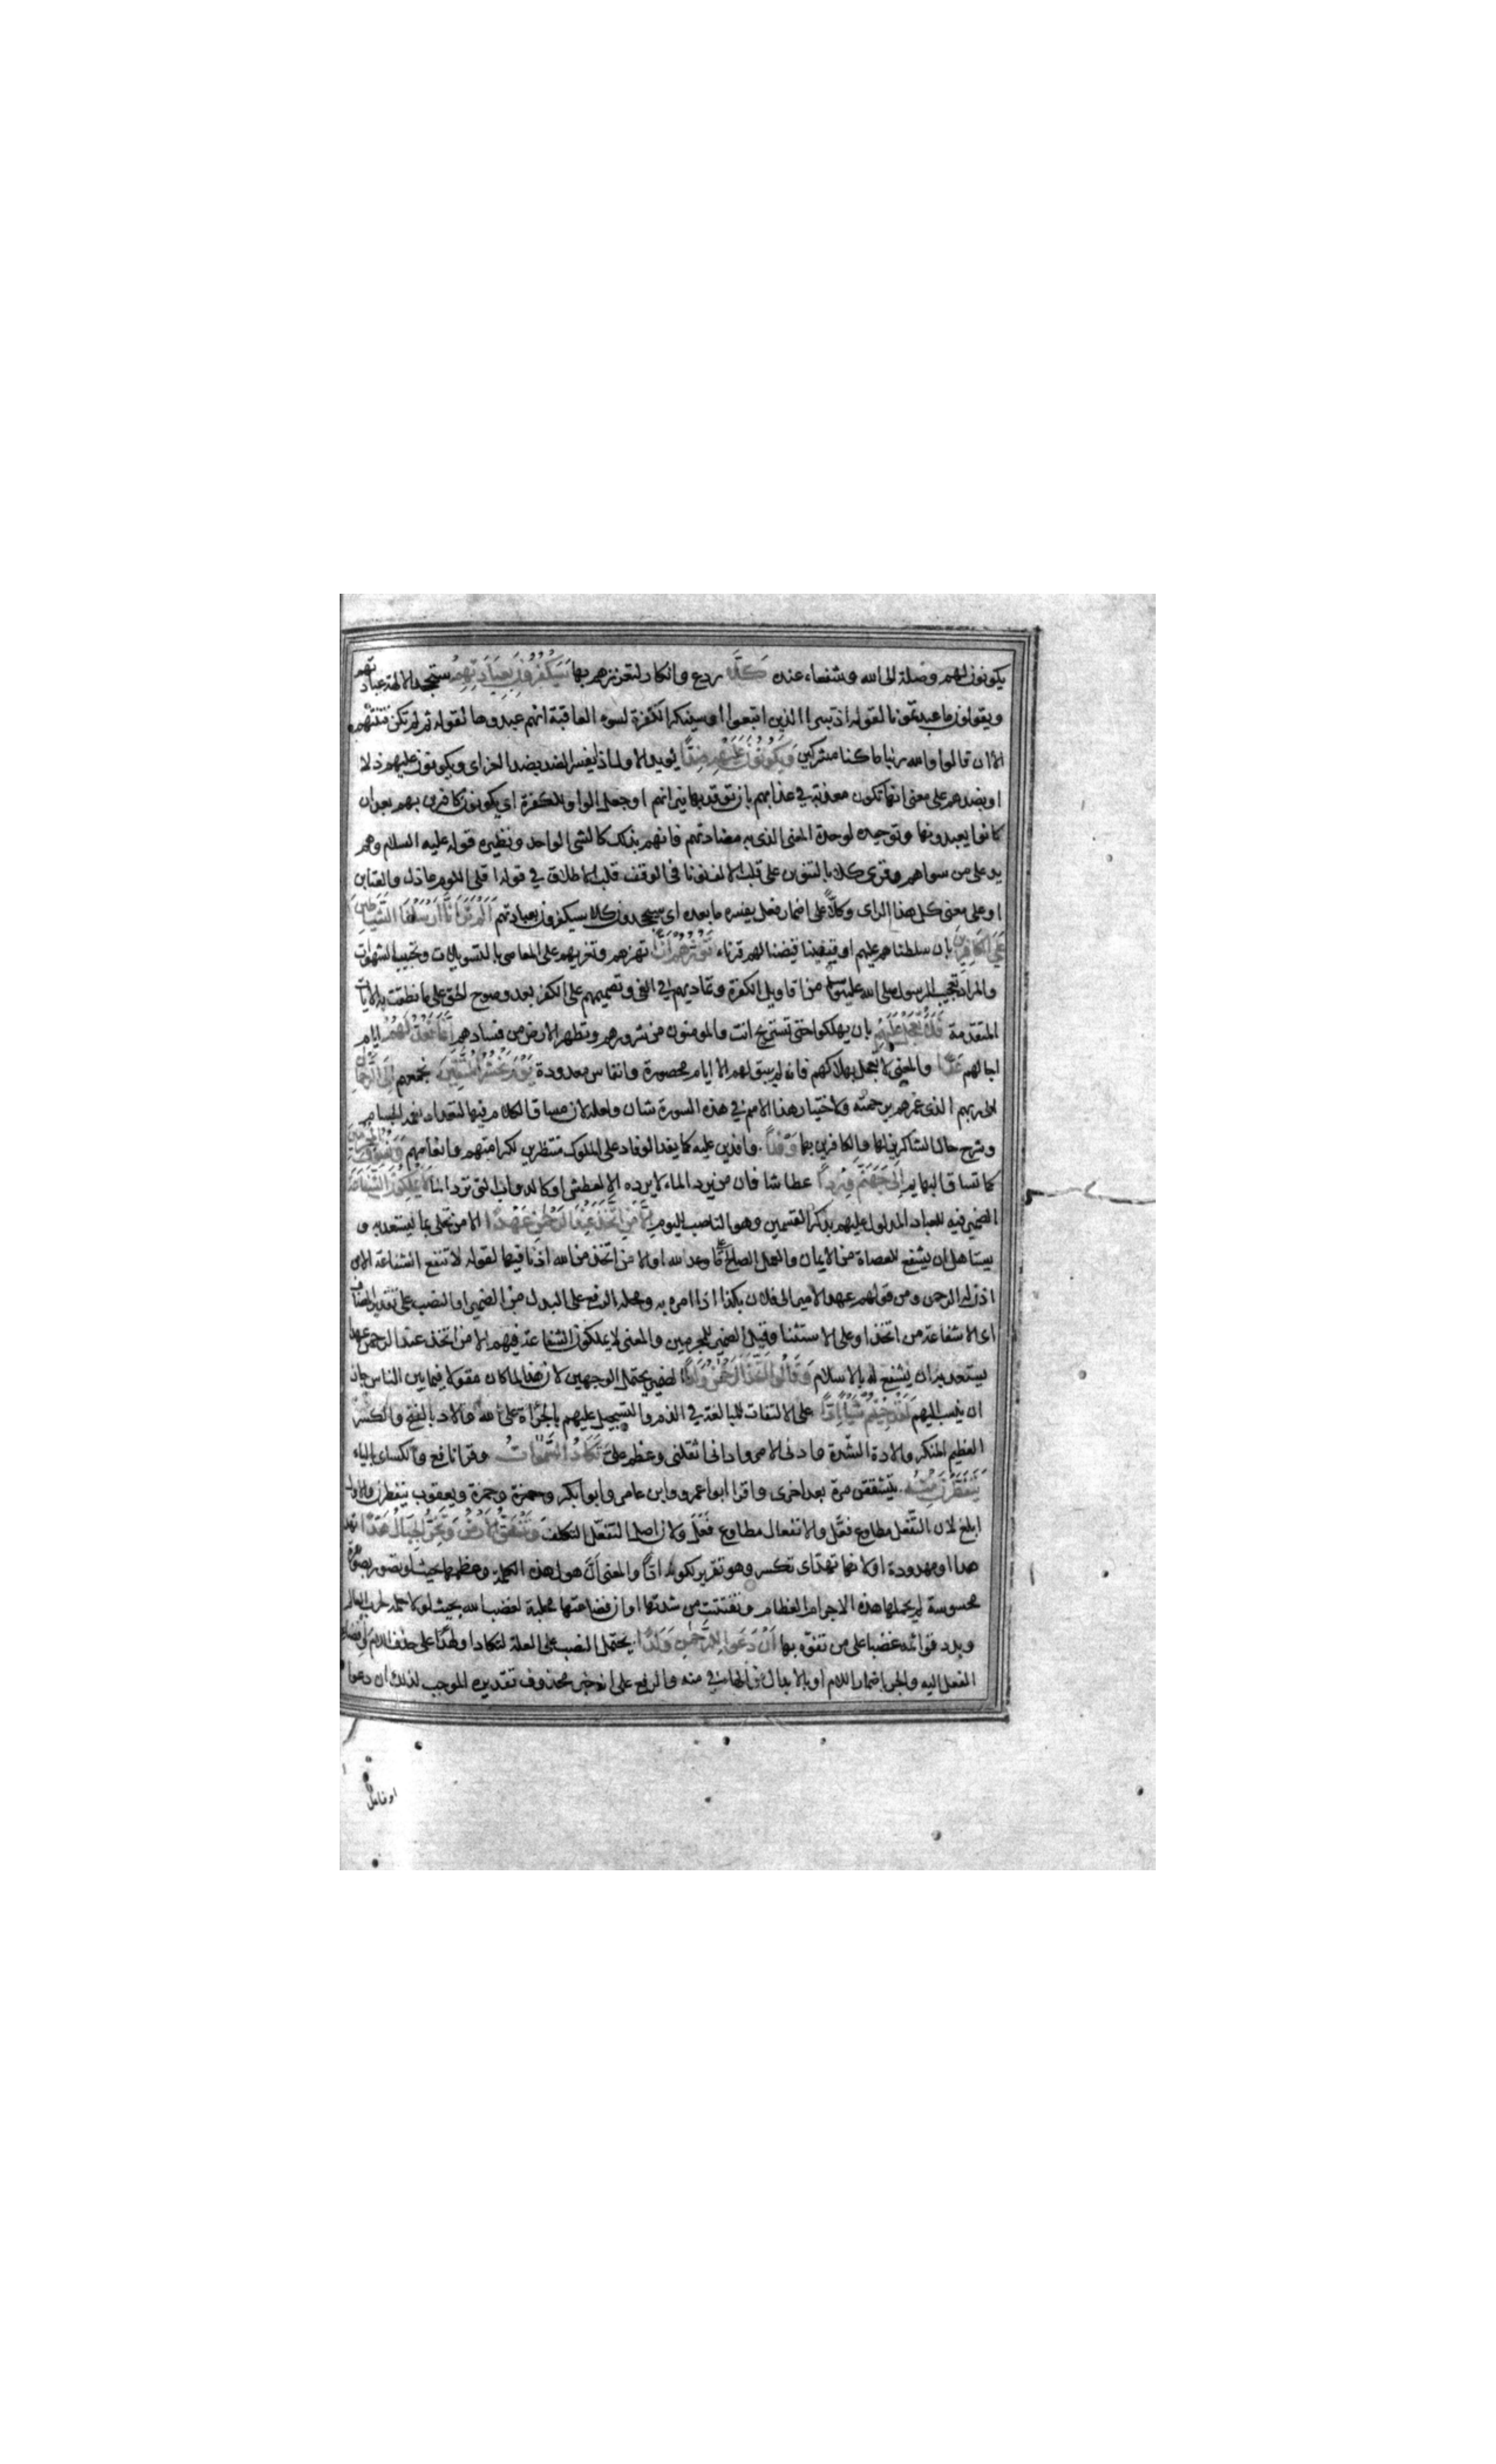 يكونون لهم وصلة الى الله وشفعاء عنده كَلَّا ردع وانكار لتعززهم بها سَيَكْفُرُونَ بِعِبَادَتِهِمْ ستجحد الالهة عبادتهم
ويقولون ما عبدتمونا لقوله اذ تبرا الذين اتبعوا او سينكر الكفرة لسوء العاقبة انهم عبدوها لقوله ثم لم تكن فتنتهم
الا ان قالوا والله ربنا ما كنا مشركين وَيَكُونُونَ عَلَيْهِمْ ضِدًّا يؤيد الاول اذا فسر الضد بضد العز اى ويكونون عليهم ذلا
او بضدهم على معنى انها تكون معونة في عذابهم بان توقد بها نيرانهم او جعل الواو للكفرة اى يكونون كافرين بهم بعد ان
كانوا يعبدونها وتوحيده لوحدة المعنى الذى به مضادتهم فانهم بذلك كالشى الواحد ونظيره قوله عليه السلام وهم
يد على من سواهم وقرى كلا بالتنوين على قلب الالف نونا فى الوقف قلب الف الاطلاق في قوله اقلى اللوم عاذل والعتابن
او على معنى كل هذا الراى وكلاً على اضمار فعل يفسره ما بعده اى سيجحدون كلا سيكفرون بعبادتهم أَلَمْ تَرَ أَنَّا أَرْسَلْنَا الشَّيَاطِينَ
عَلَى الْكَافِرِينَ بان سلطناهم عليهم او قيضنا لهم قرناء تَؤُزُّهُمْ أَزًّا تهزهم وتغريهم على المعاصى بالتسويلات وتحبيب الشهوات
والمراد تعجيب الرسول صلى الله عليه وسلم من اقاويل الكفرة وتماديهم في الغى وتصميمهم على الكفر بعد وضوح الحق على ما نطقت به الايات
المتقدمة فَلَا تَعْجَلْ عَلَيْهِمْ بان يهلكوا حتى تستريح انت والمومنون من شرورهم وتطهر الارض من فسادهم إِنَّمَا نَعُدُّ لَهُمْ ايام
اجالهم عَدًّا والمعنى لا تعجل بهلاكهم فانه لم يبق لهم الا ايام محصورة وانفاس معدودة يَوْمَ نَحْشُرُ الْمُتَّقِينَ نجمعهم إِلَى الرَّحْمَنِ
الى ربهم الذى غمرهم برحمته ولاختيار هذا الاسم في هذه السورة شان ولعله لان مساق الكلام فيها لتعداد نعمه الجسام
وشرح حال الشاكرين لها والكافرين بها وَفْدًا وافدين عليه كما يفد الوفاد على الملوك منتظرين لكرامتهم وانعامهم وَنَسُوقُ الْمُجْرِمِينَ
كما تساق البهايم إِلَى جَهَنَّمَ وِرْدًا عطاشا فان من يرد الماء لا يرده الا لعطش او كالدواب التى ترد الماء لَا يَمْلِكُونَ الشَّفَاعَةَ
الضمير فيه للعباد المدلول عليهم بذكر القسمين وهو الناصب لليوم إِلَّا مَنِ اتَّخَذَ عِنْدَ الرَّحْمَنِ عَهْدًا الا من تحلى بما يستعد به و
يستاهل ان يشفع للعصاة من الايمان والعمل الصالح على ما وعد الله او الا من اتخذ من الله اذنا فيها لقوله لا تنفع الشفاعة الا من
اذن له الرحمن ومن قولهم عهد الامير الى فلان بكذا اذا امره به ومحله الرفع على البدل من الضمير او النصب على تقدير المضاف
اى الا شفاعة من اتخذ او على الاستثنا وقيل الضمير للمجرمين والمعنى لا يملكون الشفاعة فيهم الا من اتخذ عند الرحمن عهدا
يستعد به ان يشفع له بالاسلام وَقَالُوا اتَّخَذَ الرَّحْمَنُ وَلَدًا الضمير يحتمل الوجهين لان هذا لما كان مقولا فيما بين الناس جاز
ان ينسب اليهم لَقَدْ جِئْتُمْ شَيْئًا إِدًّا على الالتفات للمبالغة في الذم والتسجيل عليهم بالجراة على الله والاد بالفتح والكسر
العظيم المنكر والادة الشدة وادنى الامر وادانى اثقلنى وعظم على تَكَادُ السَّمَوَاتُ وقرا نافع والكساى بالياء
يَتَفَطَّرْنَ مِنْهُ يتشققن مرة بعد اخرى واقرا ابوا عمرو وابن عامر وابوا بكر وحمزة وحمزة ويعقوب ينفطرن والاول
ابلغ لان التفعّل مطاوع فعّل والانفعال مطاوع فعَلَ ولان اصل التفعّل التكلف وَتَنْشَقُّ الْأَرْضُ وَتَخِرُّ الْجِبَالُ هَدًّا تهد
هدا او مهدودة او لانها تهد اى تكسر وهو تقرير لكونه ادًّا والمعنى انّ هول هذه الكلمة وعظمها بحيث لو تصور بصورة
محسوسة لم يحملها هذه الاجرام العظام وتفتتت من شدتها او ان فضاعتها مجلبة لغضب الله بحيث لولا حلمه لخرب العالم
وبدد قوائمه غضبا على من تفوّه بها أَنْ دَعَوْا لِلرَّحْمَنِ وَلَدًا يحتمل النصب على العلة لتكاد او لهدًّا على حذف اللام وافضاء
الفعل اليه والجر باضمار اللام او بالابدال من الهاء في منه والرفع على انه خبر محذوف تقديره الموجب لذلك ان دعوا
او فاعل